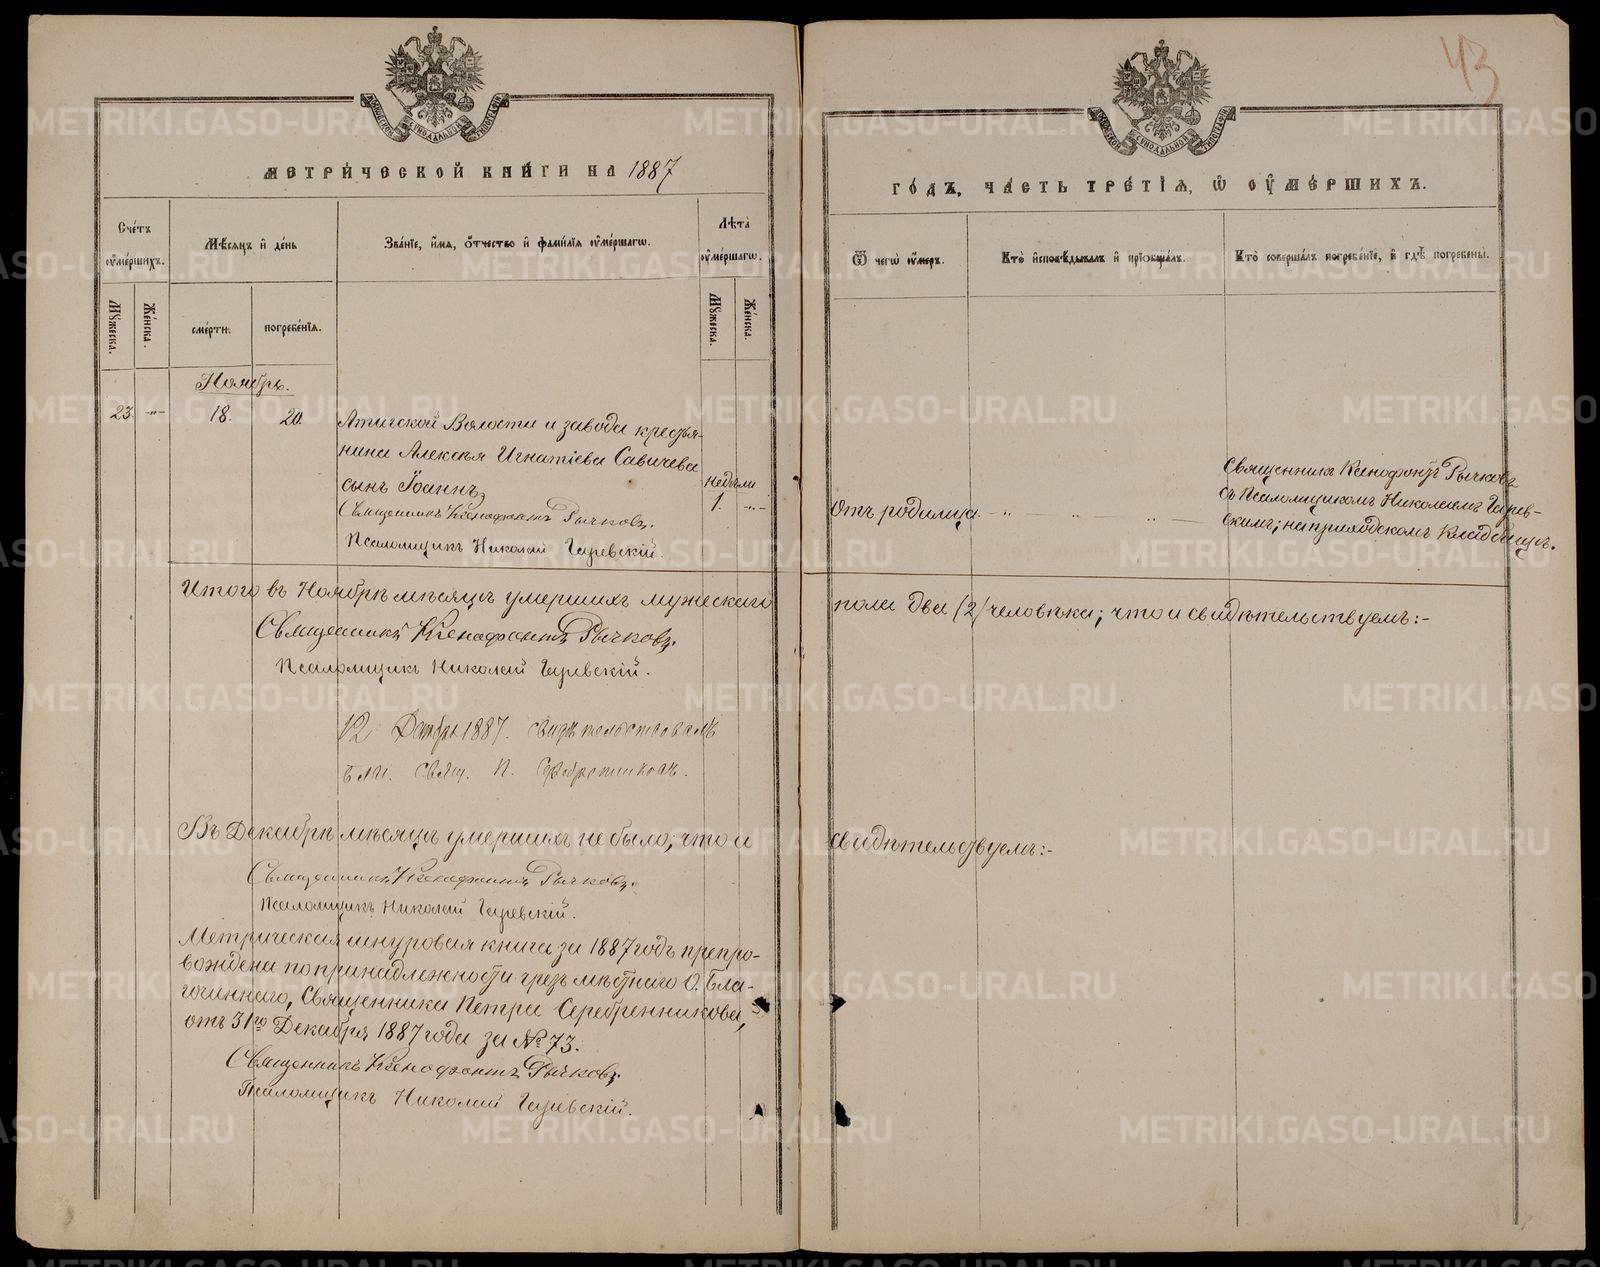 43
МЕТРИ́ЧЕСКОЙ КНИ́ГИ НА 1887
ГО́ДЪ, ЧА́СТЬ ТРЕ́ТІЯ, Ѡ ОУ҆МЕ́РШИХЪ.
Сче́тъ оу҆ме́ршихъ.
Мѣ́сяцъ и҆ де́нь
Зва́нїе, и҆́мя, ѻ҆́тчество и҆ фами́лїя оу҆ме́ршагѡ.
Лѣ́та оу҆ме́ршагѡ.
Ѿ чегѡ̀ оу҆́меръ.
Кто̀ и҆сповѣ́дывалъ и҆ прїѡбща́лъ.
Кто̀ соверша́лъ погребе́нїе, и҆ гдѣ̀ погребены̀.
Мꙋ́жеска.
Же́нска.
сме́рти.
погребе́нїя.
Мꙋ́жеска.
Же́нска.
Ноябрь.
23. -„- 18. 20. Атигской Волости и завода крестья-
нина Алексѣя Игнатіева Савичева
сынъ Іоаннъ,
недѣли
1. -„-
Священникъ Ксенофонтъ Рычковъ.
Псаломщикъ Николай Гаревскій.
отъ родимца. — „ — „ —
Священникъ Ксенофонтъ Рычковъ
съ Псаломщикомъ Николаемъ Гарев-
скимъ; на приходскомъ кладбищѣ.
Итого въ Ноябрѣ мѣсяцѣ умершихъ мужескаго
пола два (2) человѣка; что и свидѣтельствуемъ:-
Священникъ Ксенофонтъ Рычковъ.
Псаломщикъ Николай Гаревскій.
12 Декабря 1887. свидѣтельствовалъ
Благ. Свящ. П. Серебренниковъ.
Въ Декабрѣ мѣсяцѣ умершихъ не было; что и
свидѣтельствуемъ:-
Священникъ Ксенофонтъ Рычковъ.
Псаломщикъ Николай Гаревскій.
Метрическая шнуровая книга за 1887 годъ препро-
вождена по принадлежности чрезъ мѣстнаго О. Бла-
гочиннаго, Священника Петра Серебренникова,
отъ 31го Декабря 1887 года за № 73.
Священникъ Ксенофонтъ Рычковъ.
Псаломщикъ Николай Гаревскій.
METRIKI.GASO-URAL.RU